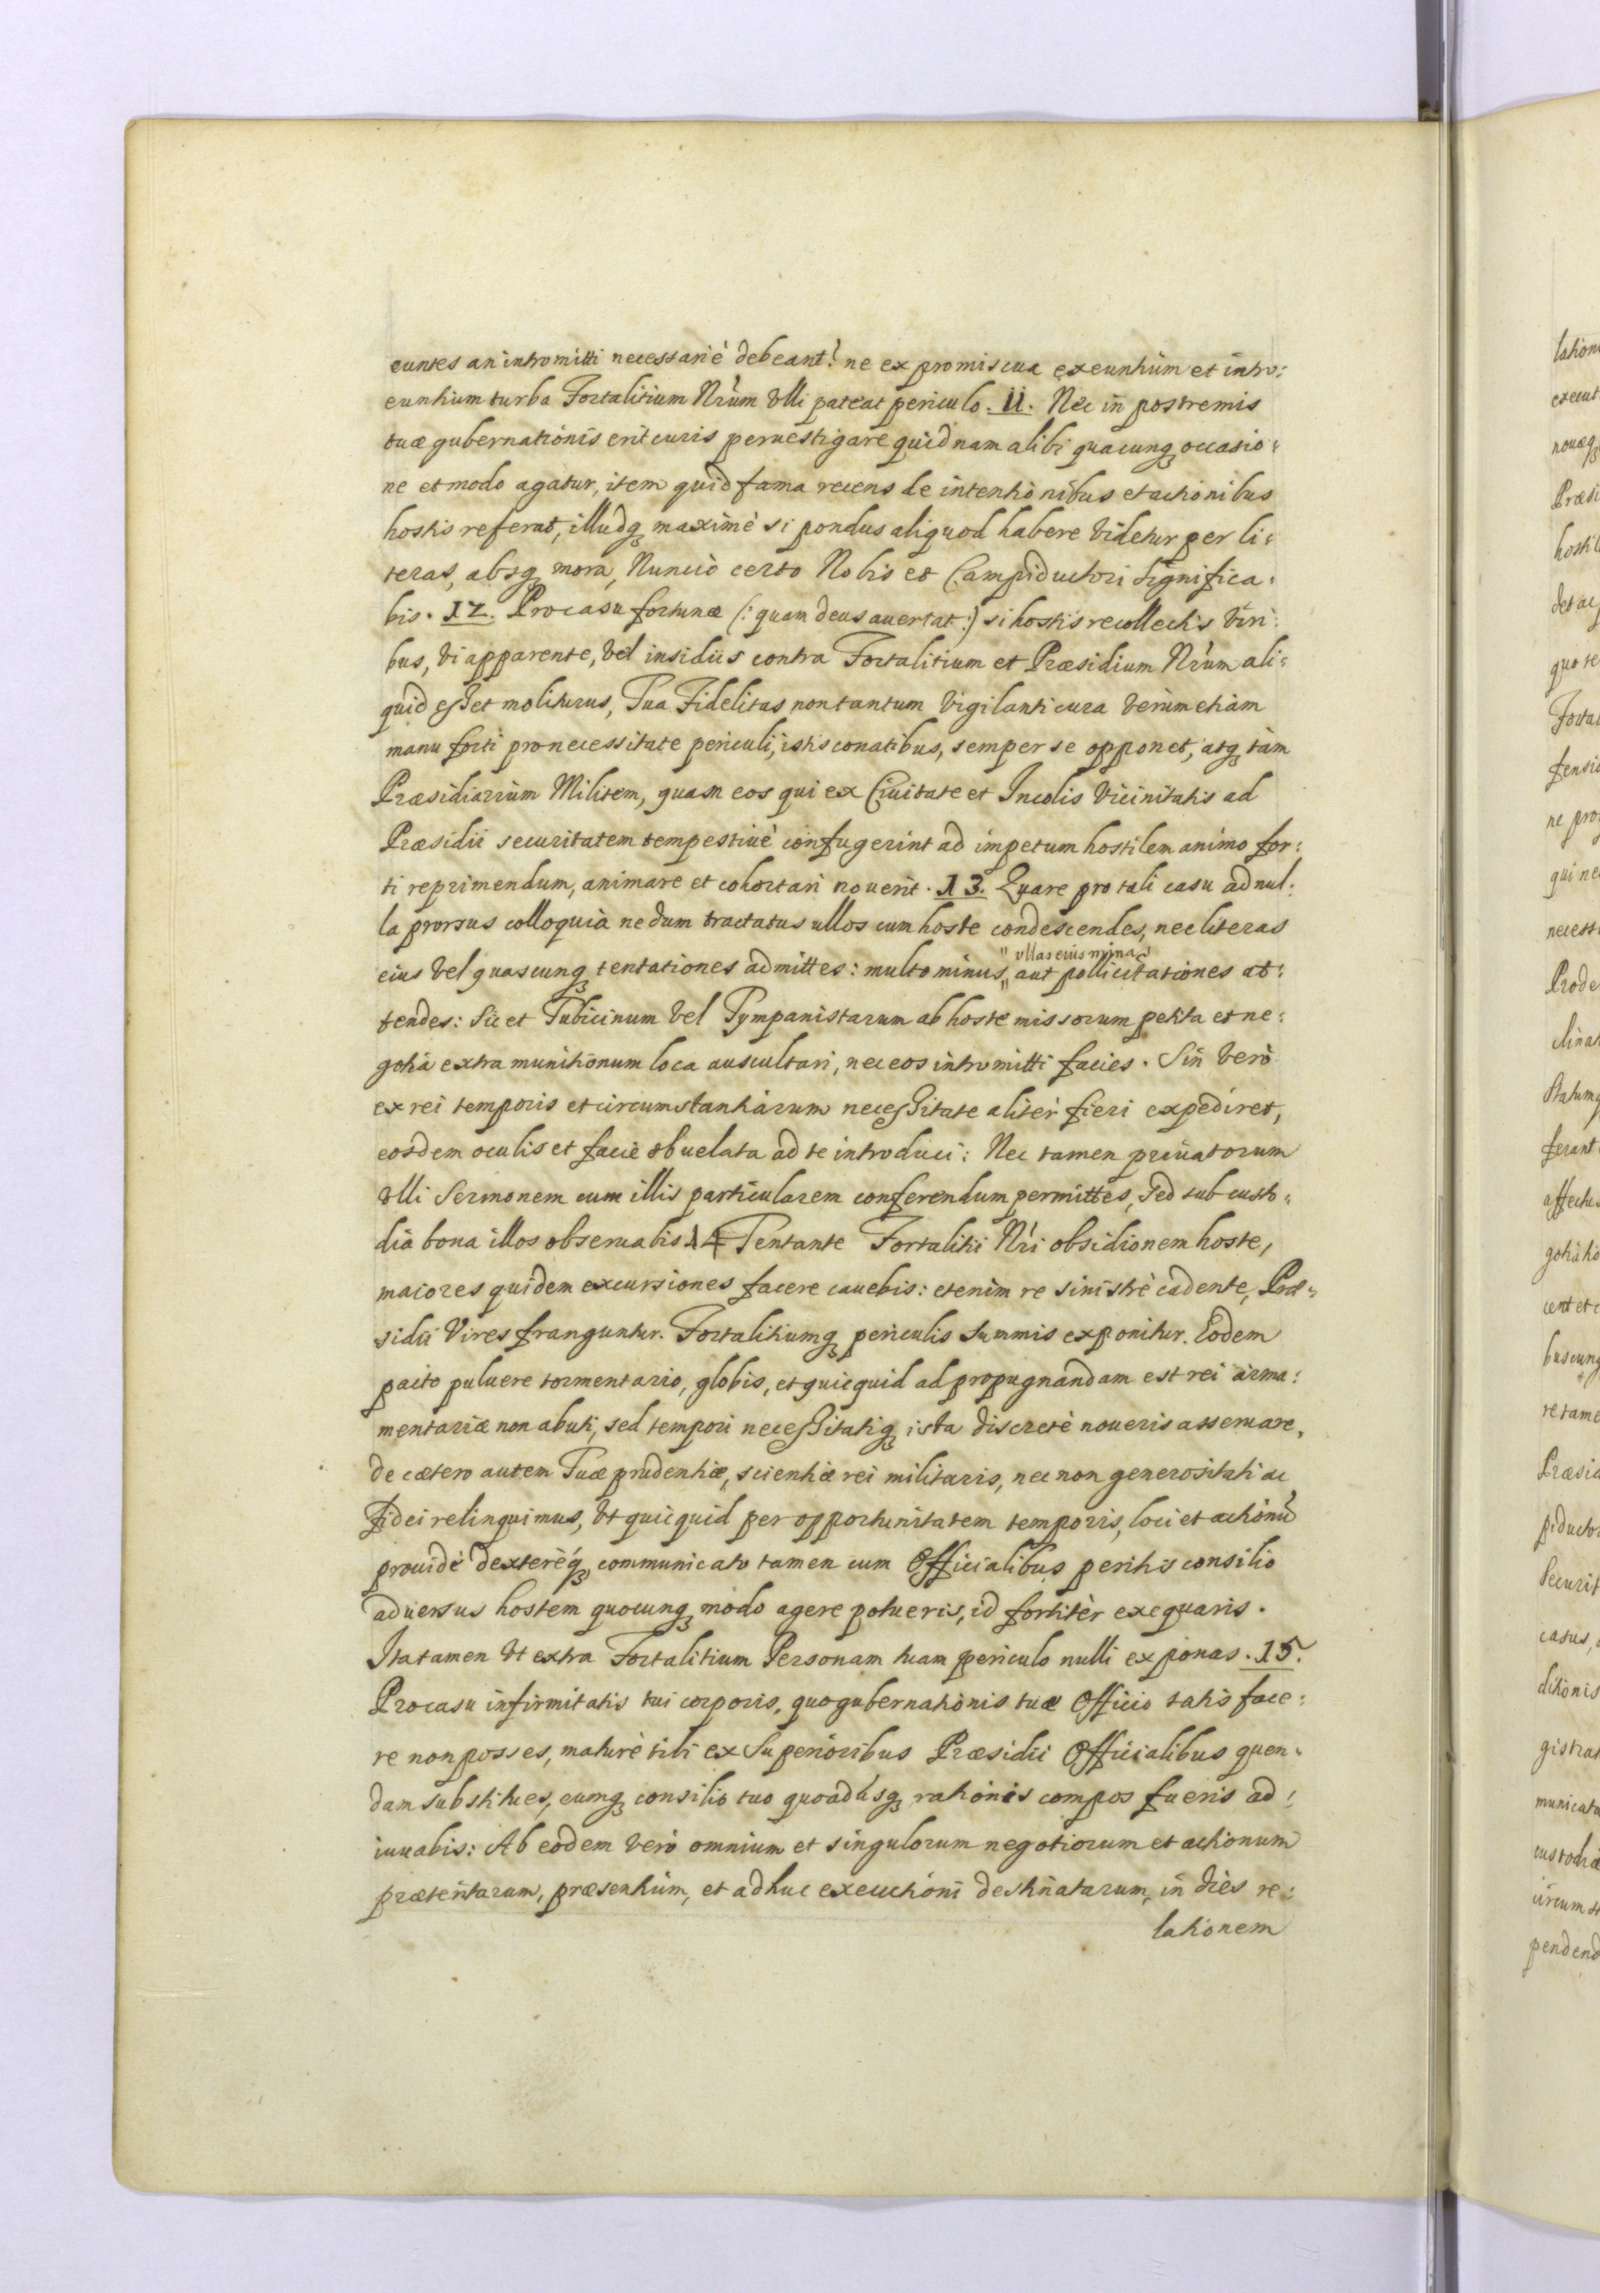 euntes an intromitti necessariè debeant? ne ex promiscua exeuntium et intro:
euntium turba Fortalitium Nr̃um Vlli pateat periculo. 11. Nec in postremis
tuæ gubernationis erit curis peruestigare quidnam alibi quacunq꞉ occasio:
ne et modo agatur, item quid fama recens de intentionibus et actionibus
hostis referat, illudq꞉ maximè si pondus aliquod habere Videtur per li:
teras, absq꞉ mora, Nuncio certo Nobis et Campiductori significa:
bis. 12. Pro casu fortunæ (: quam deus auertat :) si hostis recollectis Viri:
bus, Vi apparente, Vel insidiis contra Fortalitium et Præsidium Nr̃um ali:
quid esset moliturus, Tua Fidelitas non tantum Vigilanti cura Verùm etiam
manu forti pro necessitate periculi, istis conatibus, semper se opponet, atq꞉ tàm
Præsidiarium Militem, quam eos qui ex Ciuitate et Incolis Vicinitatis ad
Præsidii securitatem tempestiuè confugerint ad impetum hostilem animo for:
ti reprimendum, animare et cohortari nouerit. 13. Quare pro tali casu ad nul:
la prorsus colloquia nedum tractatus ullos cum hoste condescendes, nec literas
" ullas eius minas
eius Vel quascunq꞉ tentationes admittes: multo minus, " aut pollicitationes at:
tendes: Sic et Tubicinum Vel Tympanistarum ab hoste missorum petita et ne:
gotia extra munitionum loca auscultari, nec eos intromitti facies. Sin Verò
ex rei temporis et circumstantiarum necessitate aliter fieri expediret,
eosdem oculis et facie obuelata ad te introduci: Nec tamen priuatorum
Vlli Sermonem cum illis particularem conferendum permittes, Sed sub custo:
dia bona illos obseruabis 14 Tentante Fortalitii Nr̃i obsidionem hoste,
maiores quidem excursiones facere cauebis: etenim re sinistrè cadente, Præ:
sidii Vires franguntur. Fortalitiumq꞉ periculis summis exponitur. Eodem
pacto puluere tormentario, globis, et quicquid ad propugnandam est rei arma:
mentariæ non abuti, sed tempori necessitatiq꞉ ista discretè noueris asseruare,
de cætero autem Tuæ prudentiæ, scientiæ rei militaris, nec non generositati ac
fidei relinquimus, Vt quicquid per opportunitatem temporis, loci et actionũ
prouidè dexterèq꞉ communicato tamen cum Officialibus peritis consilio
aduersus hostem quocunq꞉ modo agere potueris, id fortitèr exequaris.
Ita tamen Vt extra Fortalitium Personam tuam periculo nulli exponas. 15.
Pro casu infirmitatis tui corporis, quo gubernationis tuæ Officio satis face:
re non posses, maturè tibi ex Superioribus Præsidii Officialibus quen:
dam substitues, eumq꞉ consilio tuo quoadusq꞉ rationis compos fueris ad:
iuuabis: Ab eodem Verò omnium et singulorum negotiorum et actionum
prætentarum, præsentium, et adhuc executioni destinatarum, in dies re:
lationem